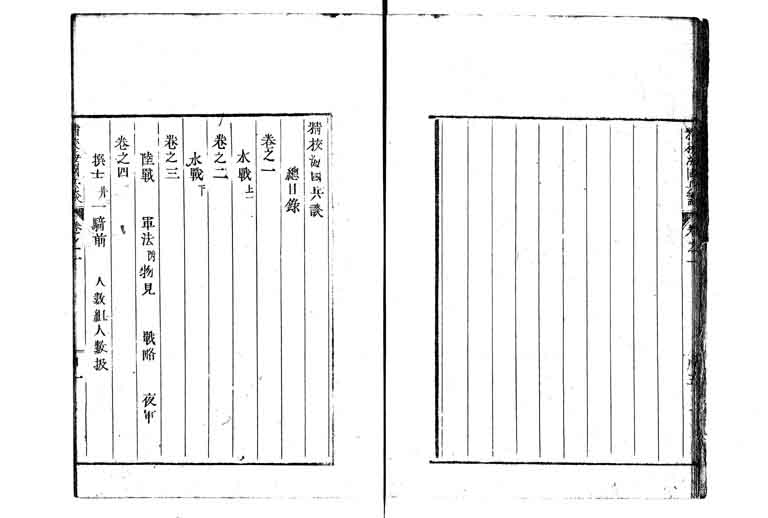 精校海國兵談
總目錄
卷之一
水戰 上
卷之二
水戰 下
卷之三
陸戰 軍法 附物見 戰略 夜軍
卷之四
撰士 并一騎前 人數組人數扱
精校海國兵談 卷之一